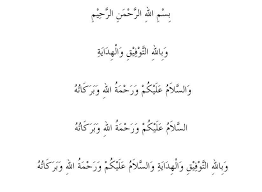 بِسْمِ اللهِ الرَّحْمَنِ الرَّحِيْمِ
وَبِاللهِ التَّوْفِيْقِ وَالْهِدَايَةِ
وَالسَّلاَمُ عَلَيْكُمْ وَرَحْمَةُ اللهِ وَبَرَكَاتُهُ
السَّلاَمُ عَلَيْكُمْ وَرَحْمَةُ اللهِ وَبَرَكَاتُهُ
وَبِاللهِ التَّوْفِيْقِ وَالْهِدَايَةِ وَالسَّلاَمُ عَلَيْكُمْ وَرَحْمَةُ اللهِ وَبَرَكَاتُهُ